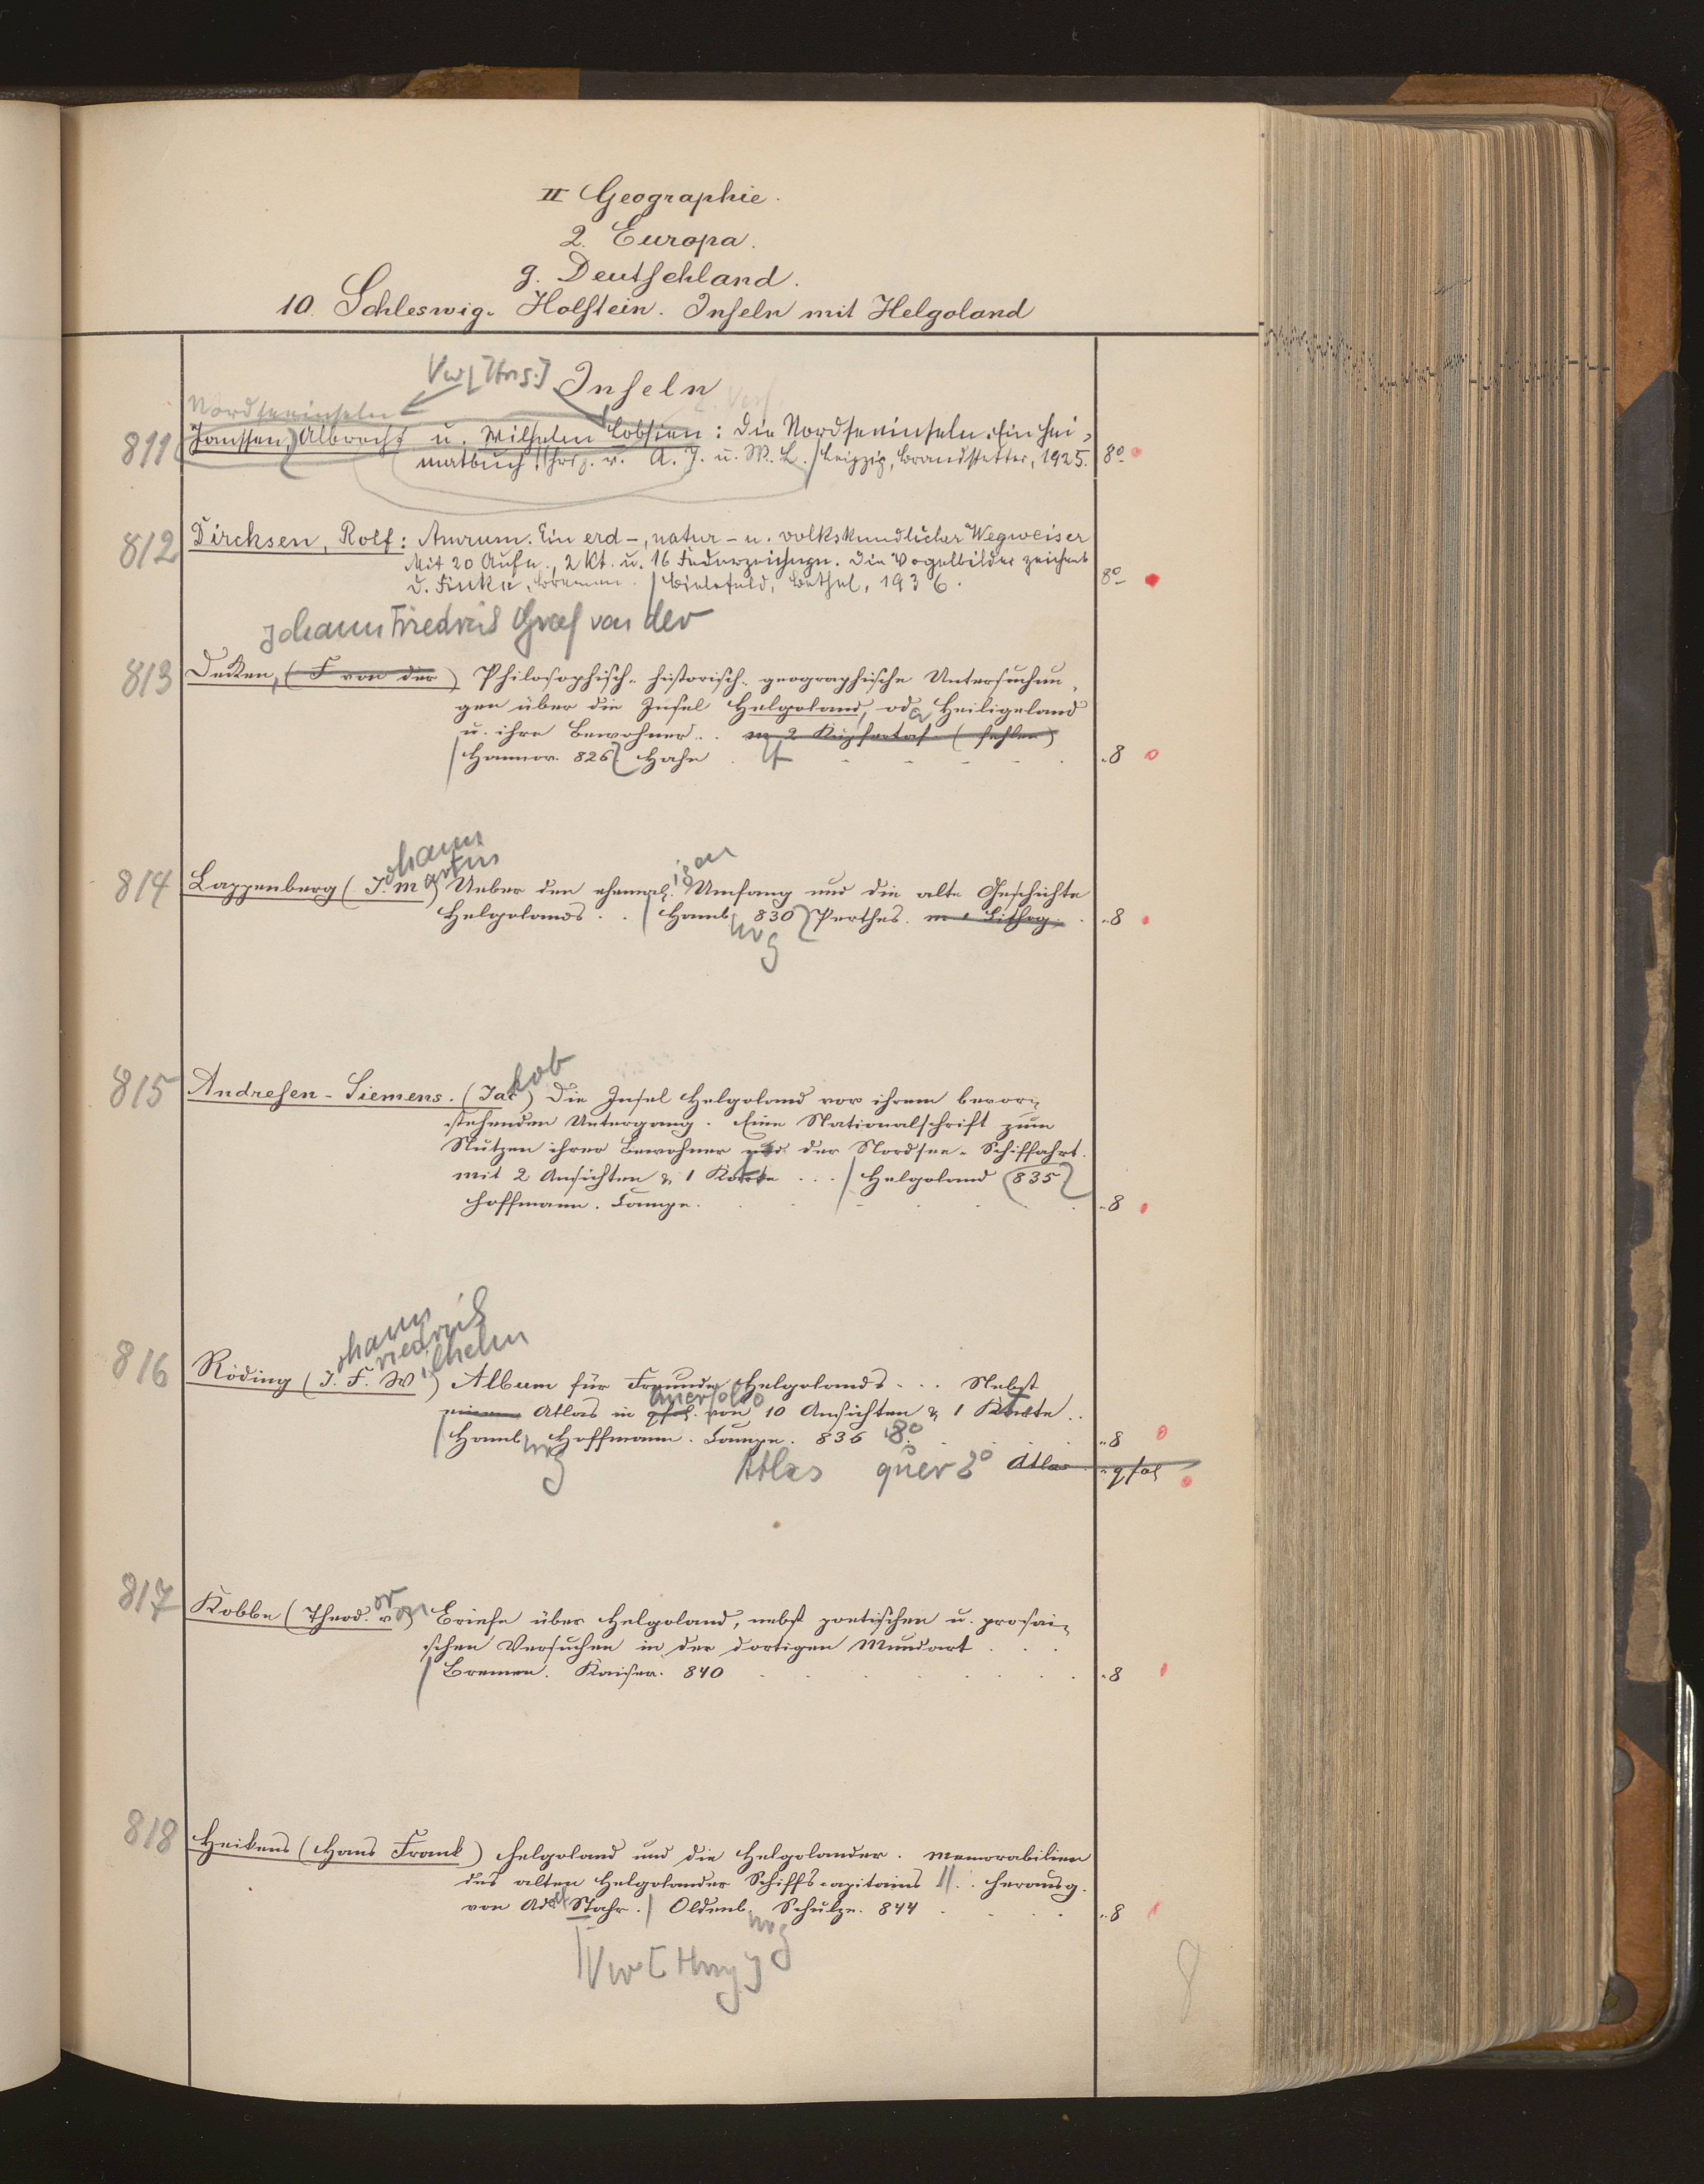 II Geographie.
2. Europa.
g. Deutschland.
10. Schleswig-Holstein. Inseln mit Helgoland
Vw [Hrsg.] Inseln
Nordseeinseln
811 Janssen, Albrecht u. Wilhelm Lobsien: Die Nordseeinseln. Ein Hei-
matbuch. Hrsg. v. A. J. u. W. L. / Leipzig, Brandstetter, 1925. 8°
812 Dircksen, Rolf: Amrum. Ein erd-, natur- u. volkskundlicher Wegweiser
Mit 20 Aufn., 2 Kt. u. 16 Federzeichngn. Die Vogelbilder zeichnet
D. Finke, Bremen. / Bielefeld, Bethel, 1936. 8°
Johann Friedrich Graf von der
813 Decken, (F von der) Philosophisch-historisch-geographische Untersuchun
gen über die Insel Helgoland, oder Heiligeland
u. ihre Bewohner.. m 2 Kupfertaf. (fehlen)
/ Hannov. 826 Hahn "8
ohann
artin igen
814 Lappenberg (J. M) Ueber den ehemal. Umfang und die alte Geschichte
Helgolands.. / Hamb 830 Perthes. m 1 Lithog. "8
urg
kob
815 Andresen-Siemens. (Jac) Die Insel Helgoland vor ihrem bevor-
stehenden Untergang. Eine Nationalschrift zum
Nutzen ihrer Bewohner und der Nordsee-Schiffahrt.
mit 2 Ansichten & 1 Karte ... / Helgoland 835
Hoffmann. Campe. "8
ohann
riedrich
ilhelm
816 Röding (J. F. W) Album für Freunde Helgolands... Nebst
querfolio
einem Atlas in qfol. von 10 Ansichten & 1 Karte..
/ Hamb Hoffmann. Campe. 836 8° "8
urg Atlas quer 2° Atlas "qfol
or
817 Kobbe (Theod. von) Briefe über Helgoland, nebst poetischen u. prosai-
schen Versuchen in der dortigen Mundart
/ Bremen. Kaiser. 840 "8
818 Heikens (Hans Frank) Helgoland und die Helgolander. Memorabilien
des alten Helgolander Schiffscapitains .. herausg.
von Adolf Stahr. / Oldenb Schulze. 844 "8
urg
Vw [Hrsg]
8